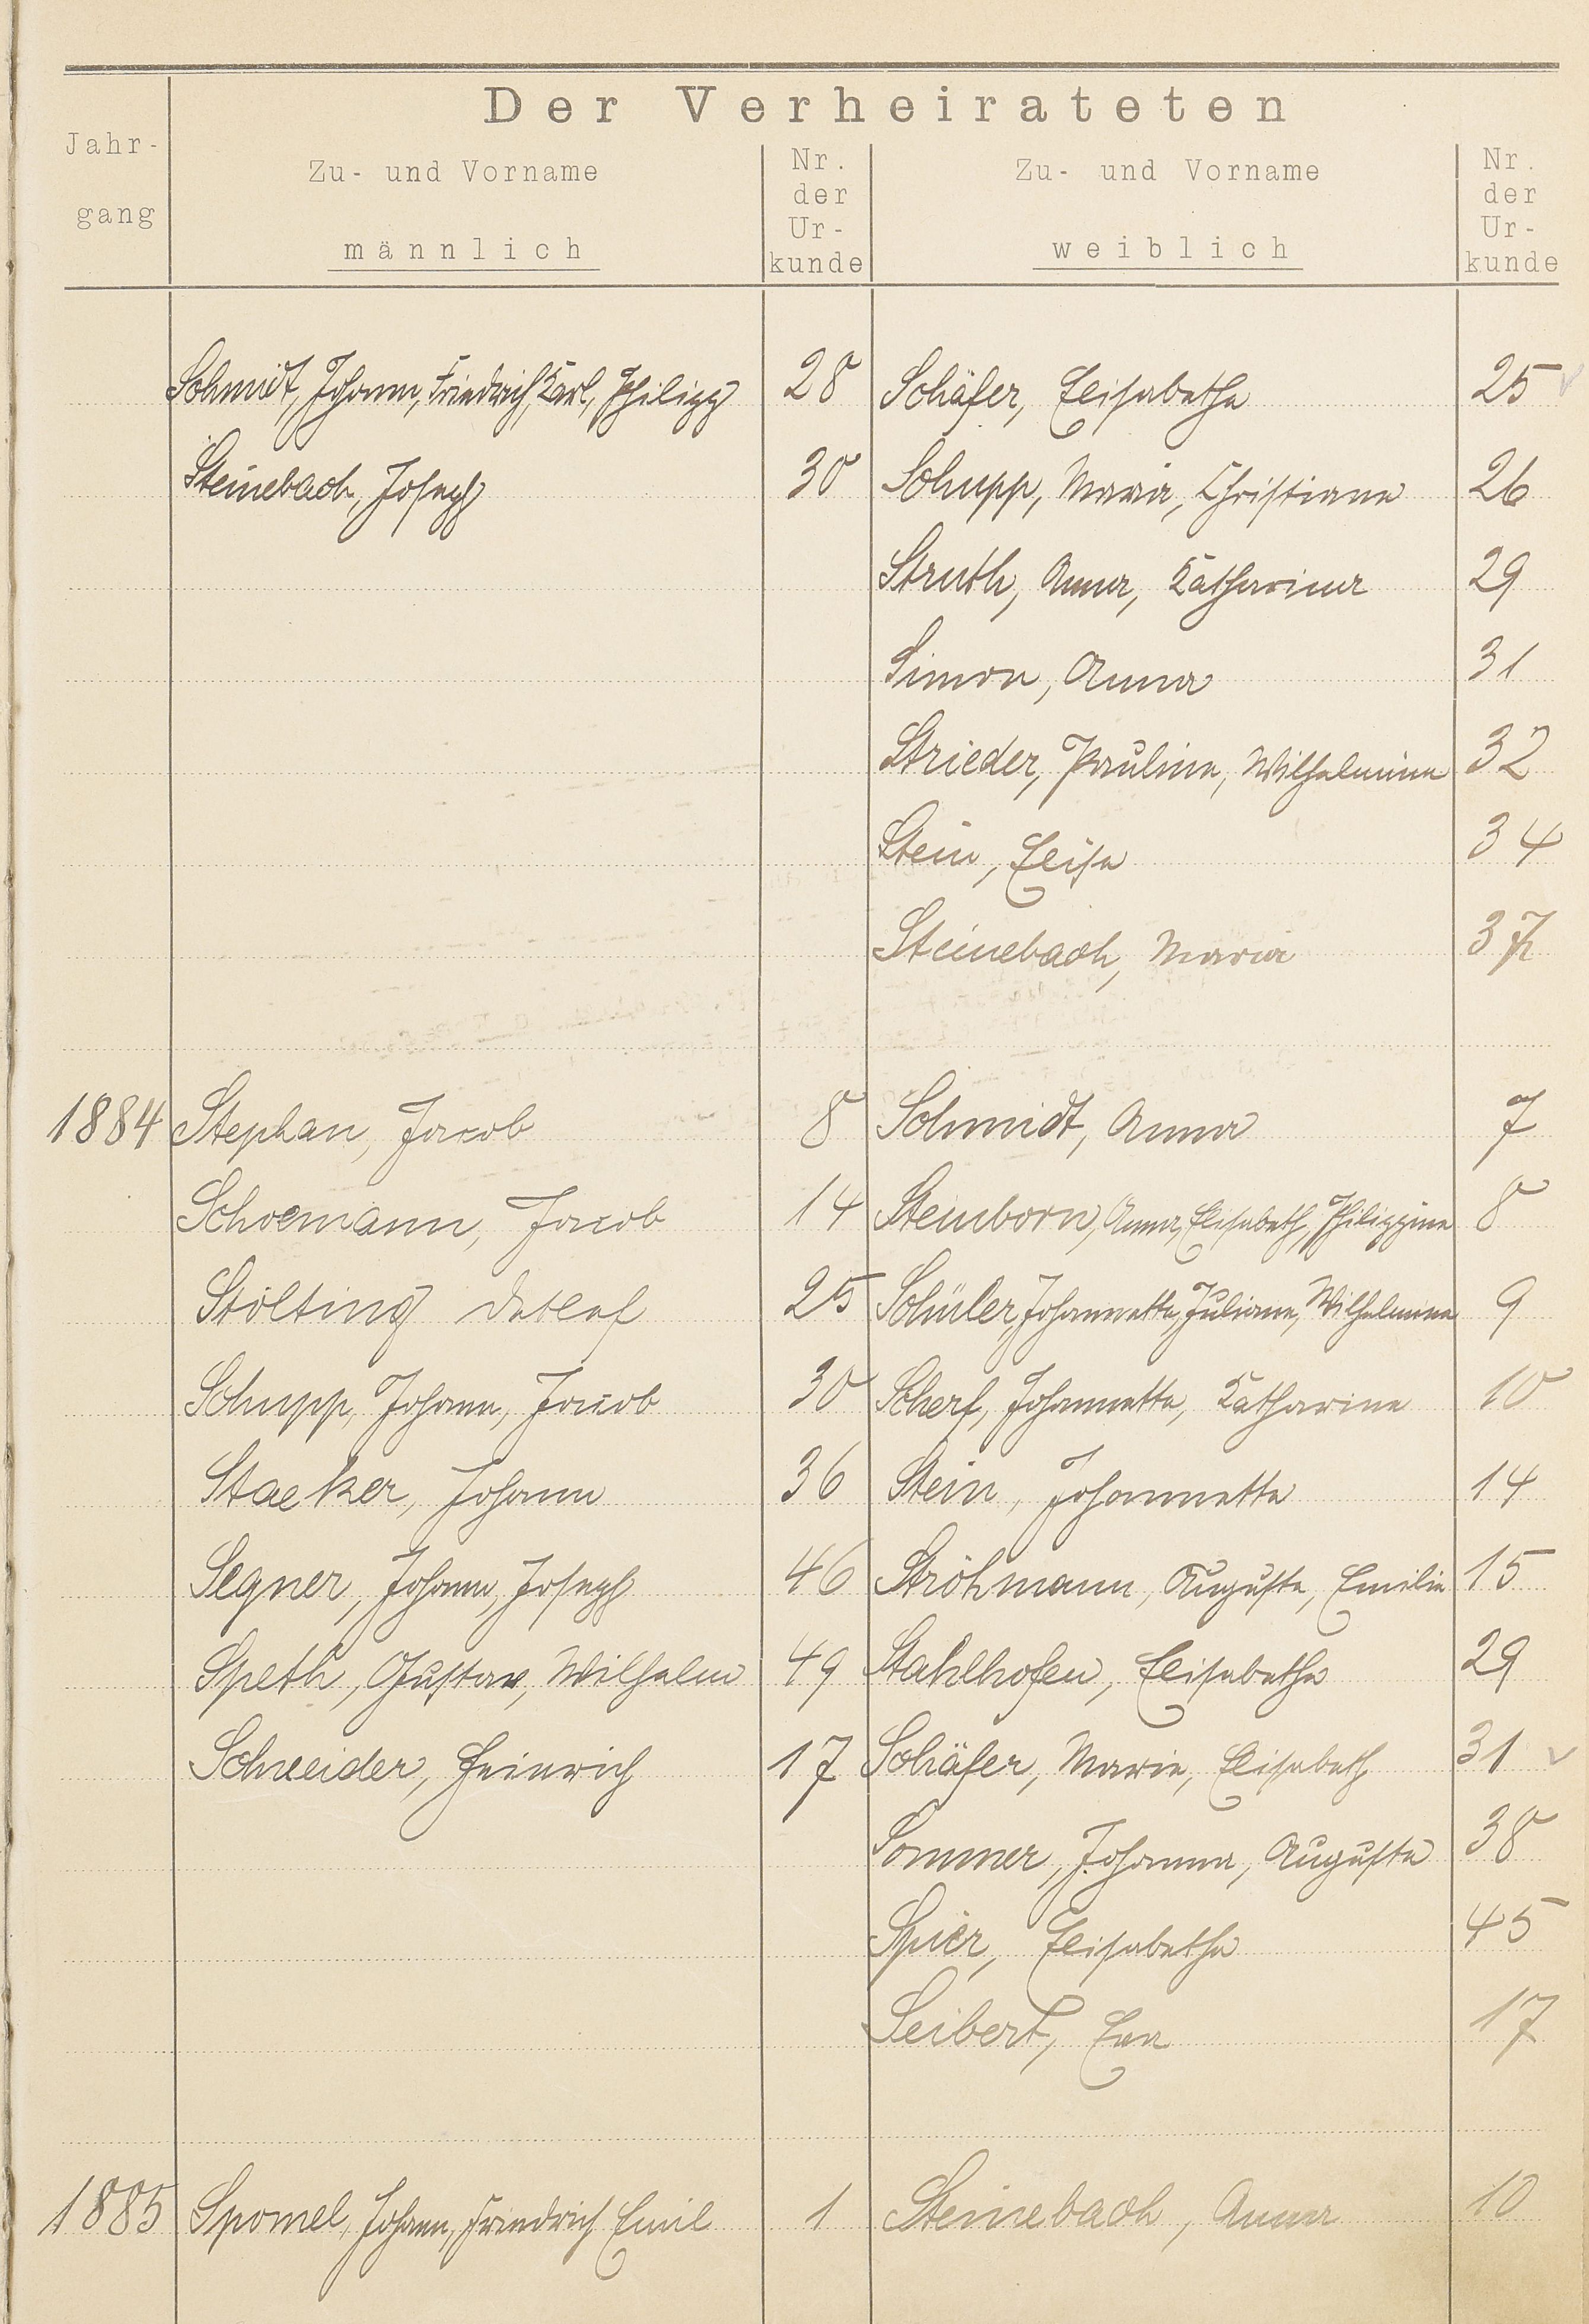 Der Verheirateten
Jahr-
gang
Zu- und Vorname
männlich
Nr.
der
Ur-
kunde
Zu- und Vorname
weiblich
Nr.
der
Ur-
kunde
Schmidt, Johann, Friedrich, Karl, Philipp 28 Schäfer, Elisabetha 25
Steinebach, Joseph 30 Schupp, Maria, Christiane 26
Struth, Anna, Katharina 29
Simon, Anna 31
Strieder, Pauline, Wilhelmine 32
Stein, Elise 34
Steinebach, Maria 37
1884 Stephan, Jacob 8 Schmidt, Anna 7
Schoemann, Jacob 14 Steinborn, Anna, Elisabeth, Philippine 8
Stölting Detlef 25 Schüler, Johannette, Juliane, Wilhelmine 9
Schupp, Johann, Jacob 30 Scherf, Johannette, Katharine 10
Staeker, Johann 36 Stein, Johannette 14
Segner, Johann, Joseph 46 Ströhmann, Auguste, Emilie 15
Speth, Gustav, Wilhelm 49 Stahlhofen, Elisabetha 29
Schneider, Heinrich 17 Schäfer, Marie, Elisabeth 31
Sommer, Johanna, Auguste 38
Spier, Elisabetha 45
Seibert, Eva 17
1885 Spomel, Johann, Friedrich Emil 1 Steinebach, Anna 10